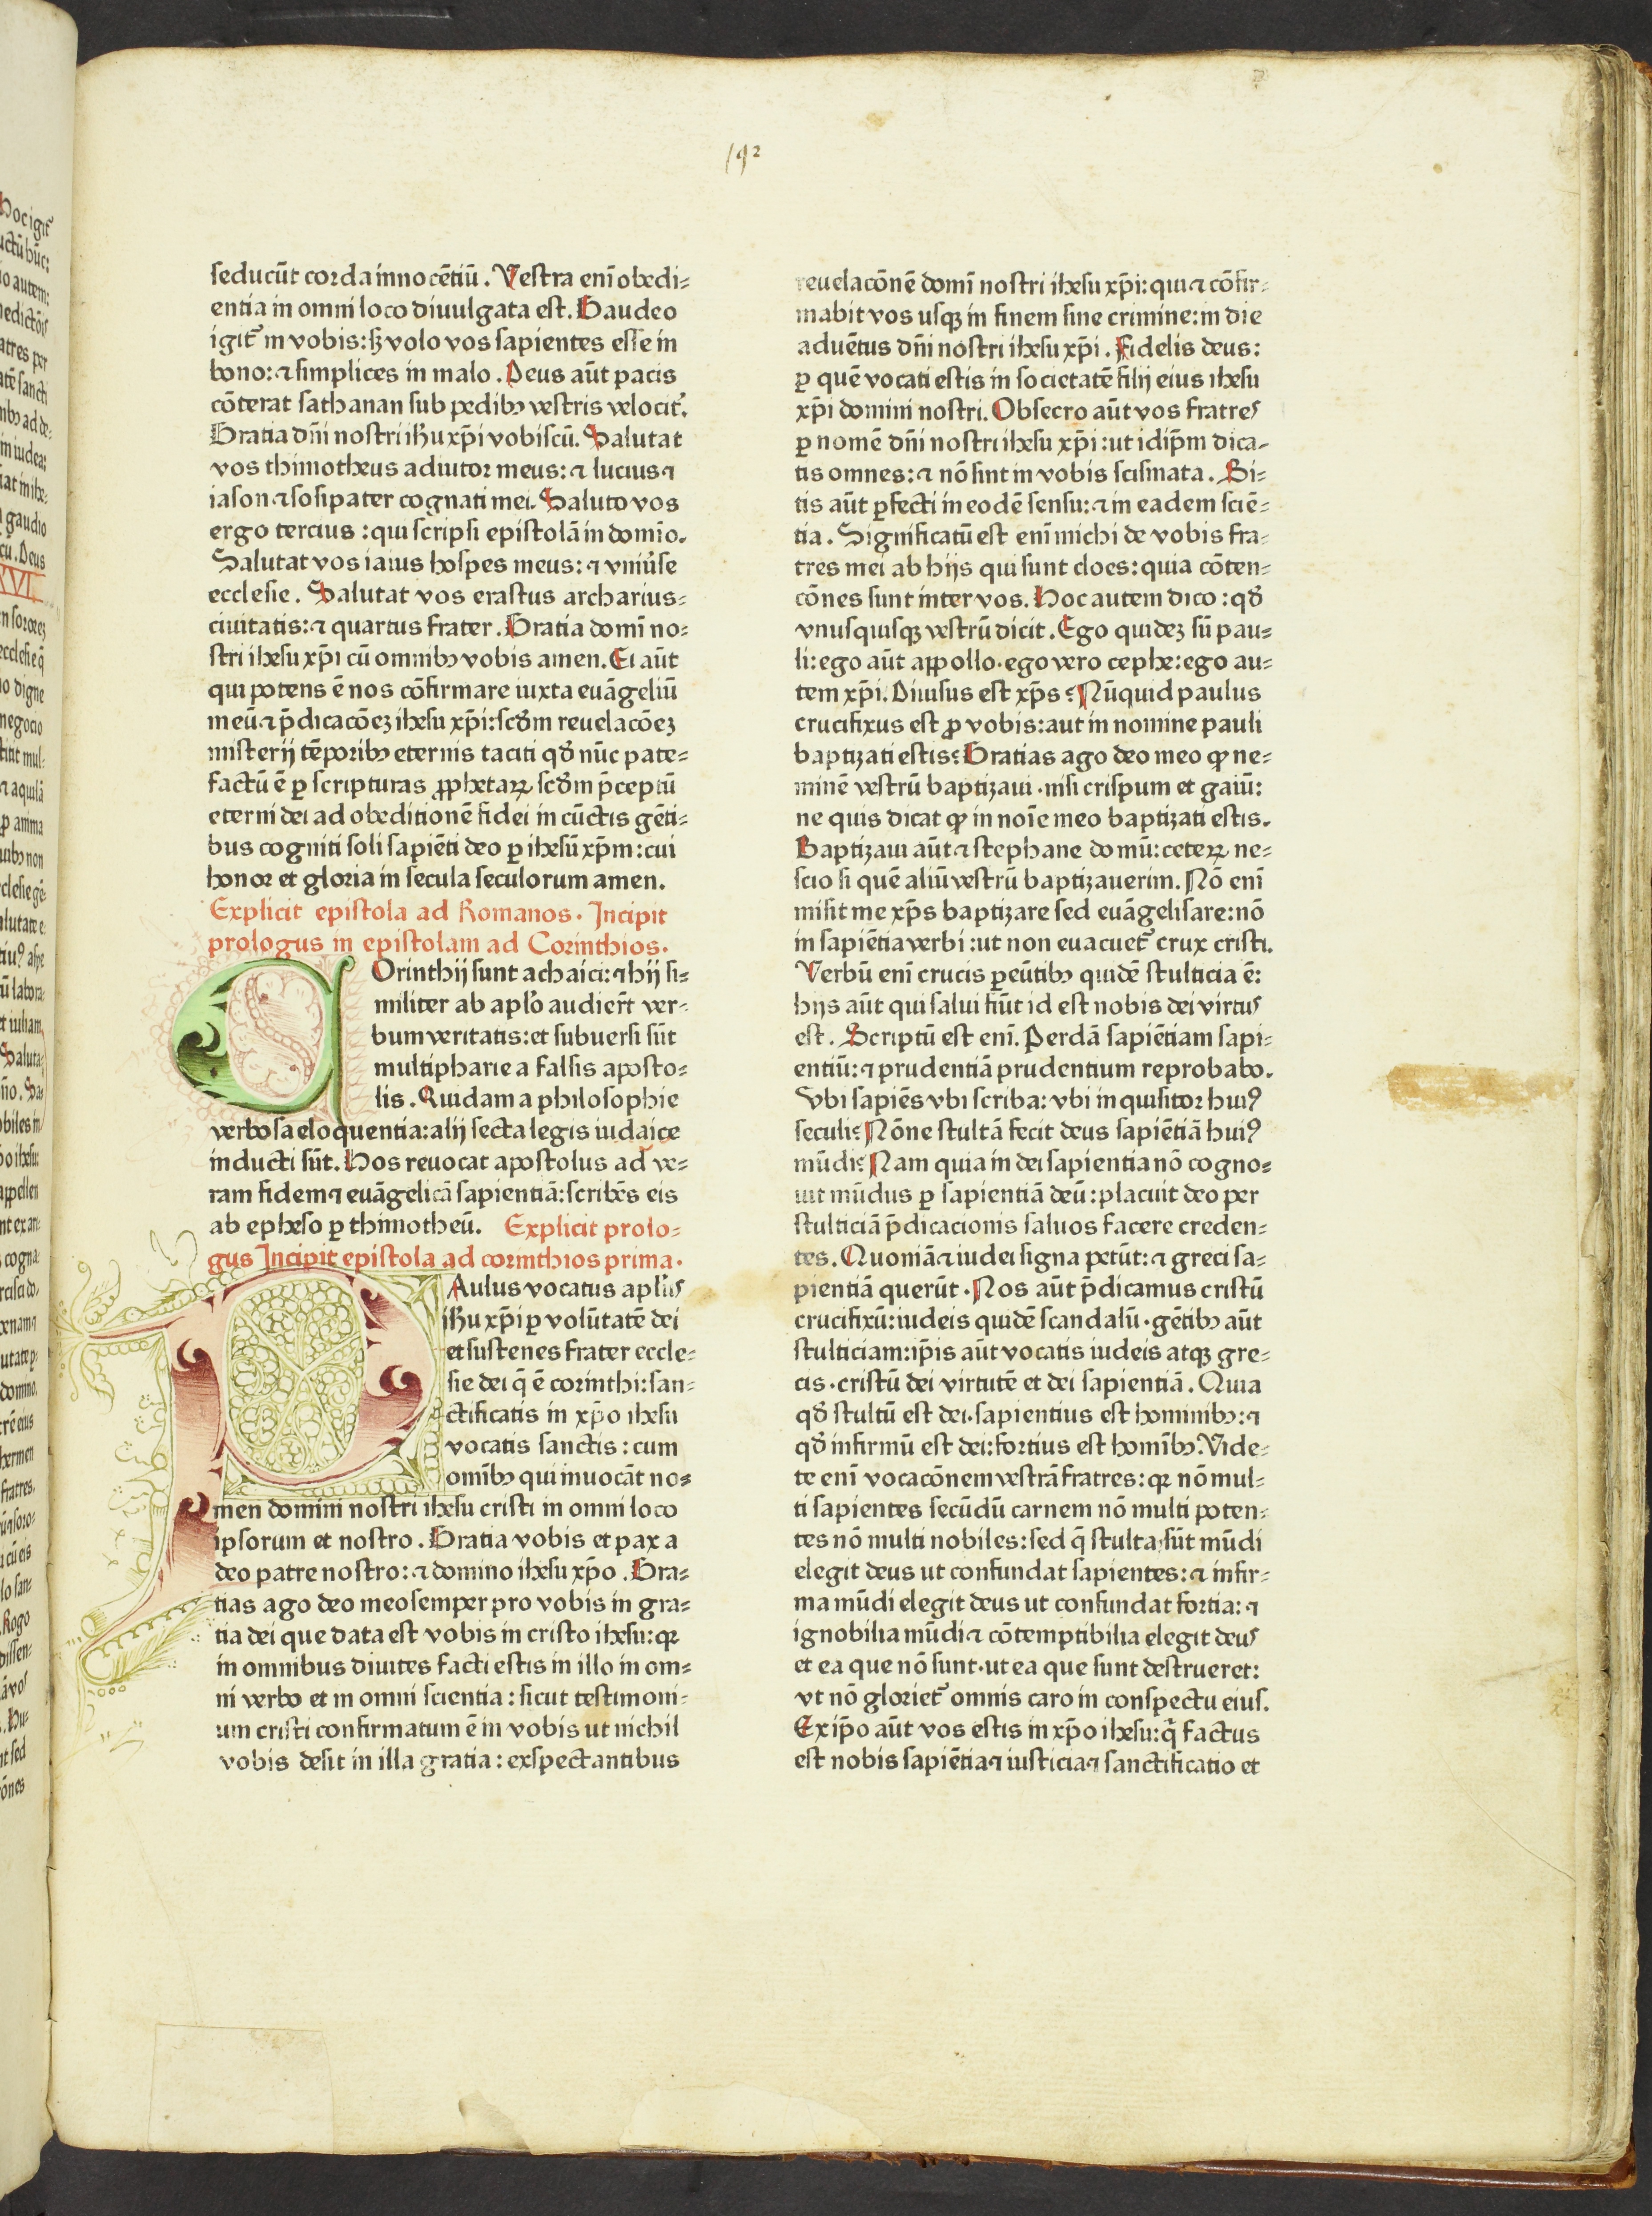 192
seducūt corda innocētiū. Vestra enī obedi-
entia in omni loco diuulgata est. Gaudeo
igit᷑ in vobis: sꝫ volo vos sapientes esse in
bono: ⁊ simplices in malo. Deus aūt pacis
cōterat sathanan sub pedibꝫ vestris velocit᷑.
Gratia dn̄i nostri ihu xp̄i vobiscū. Salutat
vos thimotheus adiutor meus: ⁊ lucius ⁊
iason ⁊ sosipater cognati mei. Saluto vos
ergo tercius: qui scripsi epistolā in domīo.
Salutat vos iaius hospes meus: ⁊ vniu᷑se
ecclesie. Salutat vos erastus archarius-
ciuitatis: ⁊ quartus frater. Gratia domī no-
stri ihesu xp̄i cū omnibꝫ vobis amen. Ei aūt
qui potens ē nos cōfirmare iuxta euāgeliū
meū ⁊ p̄dicacōeꝫ ihesu xp̄i: scd̄m reuelacōeꝫ
misterij tēporibꝫ eternis taciti qd̄ nūc pate-
factū ē ꝑ scripturas ꝓphetaꝝ scd̄m p̄ceptū
eterni dei ad obeditionē fidei in cūctis gēti-
bus cogniti soli sapiēti deo ꝑ ihesū xp̄m: cui
honor et gloria in secula seculorum amen.
Explicit epistola ad Romanos. Incipit
prologus in epistolam ad Corinthios.
COrinthij sunt achaici: ⁊ hij si-
militer ab apl̄o audier̄t ver-
bum veritatis: et subuersi sūt
multipharie a falsis aposto-
lis. Quidam a philosophie
verbosa eloquentia: alij secta legis iudaice
inducti sūt. Hos reuocat apostolus ad ve-
ram fidem ⁊ euāgelicā sapientiā: scribēs eis
ab epheso ꝑ thimotheū. Explicit prolo-
gus Incipit epistola ad corinthios prima.
PAulus vocatus apl̄us
ihu xp̄i ꝑ volūtatē dei
et sustenes frater eccle-
sie dei q̄ ē corinthi: san-
ctificatis in xp̄o ihesu
vocatis sanctis: cum
omībꝫ qui inuocāt no-
men domini nostri ihesu cristi in omni loco
ipsorum et nostro. Gratia vobis et pax a
deo patre nostro: ⁊ domino ihesu xp̄o. Gra-
tias ago deo meo semper pro vobis in gra-
tia dei que data est vobis in cristo ihesu: qꝛ
in omnibus diuites facti estis in illo in om-
ni verbo et in omni scientia: sicut testimoni-
um cristi confirmatum ē in vobis ut nichil
vobis desit in illa gratia: exspectantibus
reuelacōnē domī nostri ihesu xp̄i: qui ⁊ cōfir-
mabit vos usqꝫ in finem sine crimine: in die
aduētus dn̄i nostri ihesu xp̄i. Fidelis deus:
ꝑ quē vocati estis in societatē filij eius ihesu
xp̄i domini nostri. Obsecro aūt vos fratres
ꝑ nomē dn̄i nostri ihesu xp̄i: ut idip̄m dica-
tis omnes: ⁊ nō sint in vobis scismata. Si-
tis aūt ꝑfecti in eodē sensu: ⁊ in eadem sciē-
tia. Significatū est enī michi de vobis fra-
tres mei ab hijs qui sunt cloes: quia cōten-
cōnes sunt inter vos. Hoc autem dico: qd̄
vnusquisqꝫ vestrū dicit. Ego quideꝫ sū pau-
li: ego aūt aꝑpollo. ego vero cephe: ego au-
tem xp̄i. Diuisus est xp̄s? Nūquid paulus
crucifixus est ꝓ vobis: aut in nomine pauli
baptizati estis? Gratias ago deo meo ꝙ ne-
minē vestrū baptizaui. nisi crispum et gaiū:
ne quis dicat ꝙ in noīe meo baptizati estis.
Baptizaui aūt ⁊ stephane domū: ceteꝝ ne-
scio si quē aliū vestrū baptizauerim. Nō enī
misit me xp̄s baptizare sed euāgelisare: nō
in sapiētia verbi: ut non euacuet᷑ crux cristi.
Verbū enī crucis ꝑeūtibꝫ quidē stulticia ē:
hijs aūt qui salui fiūt id est nobis dei virtus
est. Scriptū est enī. Perdā sapiētiam sapi-
entiū: ⁊ prudentiā prudentium reprobabo.
Vbi sapiēs vbi scriba: vbi inquisitor huiꝰ
seculi? Nōne stultā fecit deus sapiētiā huiꝰ
mūdi? Nam quia in dei sapientia nō cogno-
uit mūdus ꝑ sapientiā deū: placuit deo per
stulticiā p̄dicacionis saluos facere creden-
tes. Quoniā ⁊ iudei signa petūt: ⁊ greci sa-
pientiā querūt. Nos aūt p̄dicamus cristū
crucifixū: iudeis quidē scandalū. gētibꝫ aūt
stulticiam: ip̄is aūt vocatis iudeis atqꝫ gre-
cis. cristū dei virtutē et dei sapientiā. Quia
qd̄ stultū est dei. sapientius est hominibꝫ: ⁊
qd̄ infirmū est dei: fortius est homībꝫ. Vide-
te enī vocacōnem vestrā fratres: qꝛ nō mul-
ti sapientes secūdū carnem nō multi poten-
tes nō multi nobiles: sed q̄ stulta sūt mūdi
elegit deus ut confundat sapientes: ⁊ infir-
ma mūdi elegit deus ut confundat fortia: ⁊
ignobilia mūdi ⁊ cōtemptibilia elegit deus
et ea que nō sunt. ut ea que sunt destrueret:
vt nō gloriet᷑ omnis caro in conspectu eius.
Ex ip̄o aūt vos estis in xp̄o ihesu: q̄ factus
est nobis sapiētia ⁊ iusticia ⁊ sanctificatio et